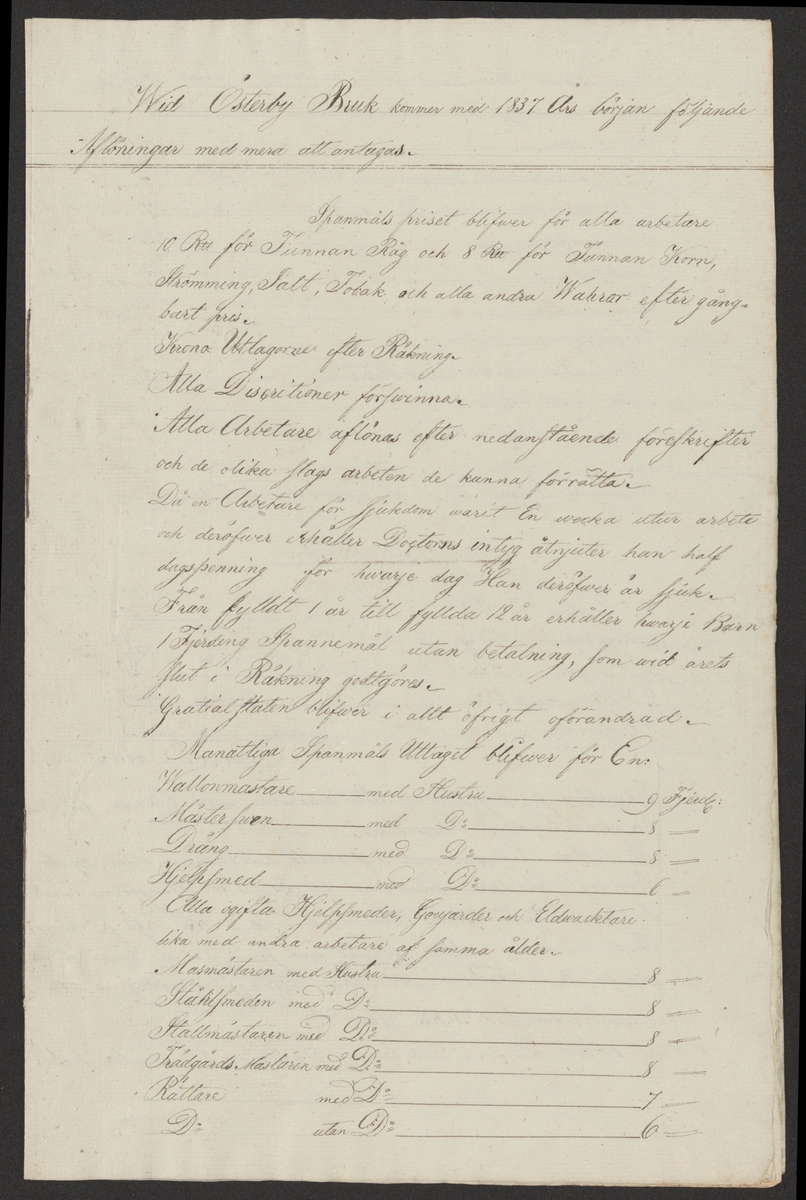 Wid Österby Bruk kommer med 1837 Års början följande
Aflöningar med mera att antagas.
Spanmåls priset blifwer för alla arbetare
10 Rd för Tunnan Råg och 8 Rd för Tunnan Korn,
Strömming, Salt, Tobak och alla andra Wahror efter gång-
bart pris.
Krono Utlagorne efter Räkning.
Alla Discritioner förswinna.
Alla Arbetare aflönas efter nedanstående föreskrifter
och de olika slags arbeten de kunna förrätta.
Då en Arbetare för sjukdom warit En wecka utur arbete
och deröfwer erhåller Doctorns intyg åtnjuter han half
dagspenning för hwarje dag Han deröfwer är sjuk.
Från fylldt 1 år till fyllda 12 år erhåller hwarje Barn
1 Fjerding Spannemål utan betalning, som wid årets
slut i Räkning godtgöres.
Gratialstaten blifwer i allt öfrigt oförändrad.
Manatliga Spanmåls Uttaget blifwer för En:
Wallonmästare med Hustru 9 Fjerd:
Mästersven med D:o 8 —
Dräng med D:o 8 —
Hjelpsmed med D:o 6 —
Alla ogifta Hjelpsmeder, Goujarder och Eldwacktare
lika med andra arbetare af samma ålder.
Masmästaren med Hustru 8 —
Ståhlsmeden med D:o 8 —
Stallmästaren med D:o 8 —
Trädgårds Mästaren med D:o 8 —
Rättare med D:o 7 —
D:o utan D:o 6 —